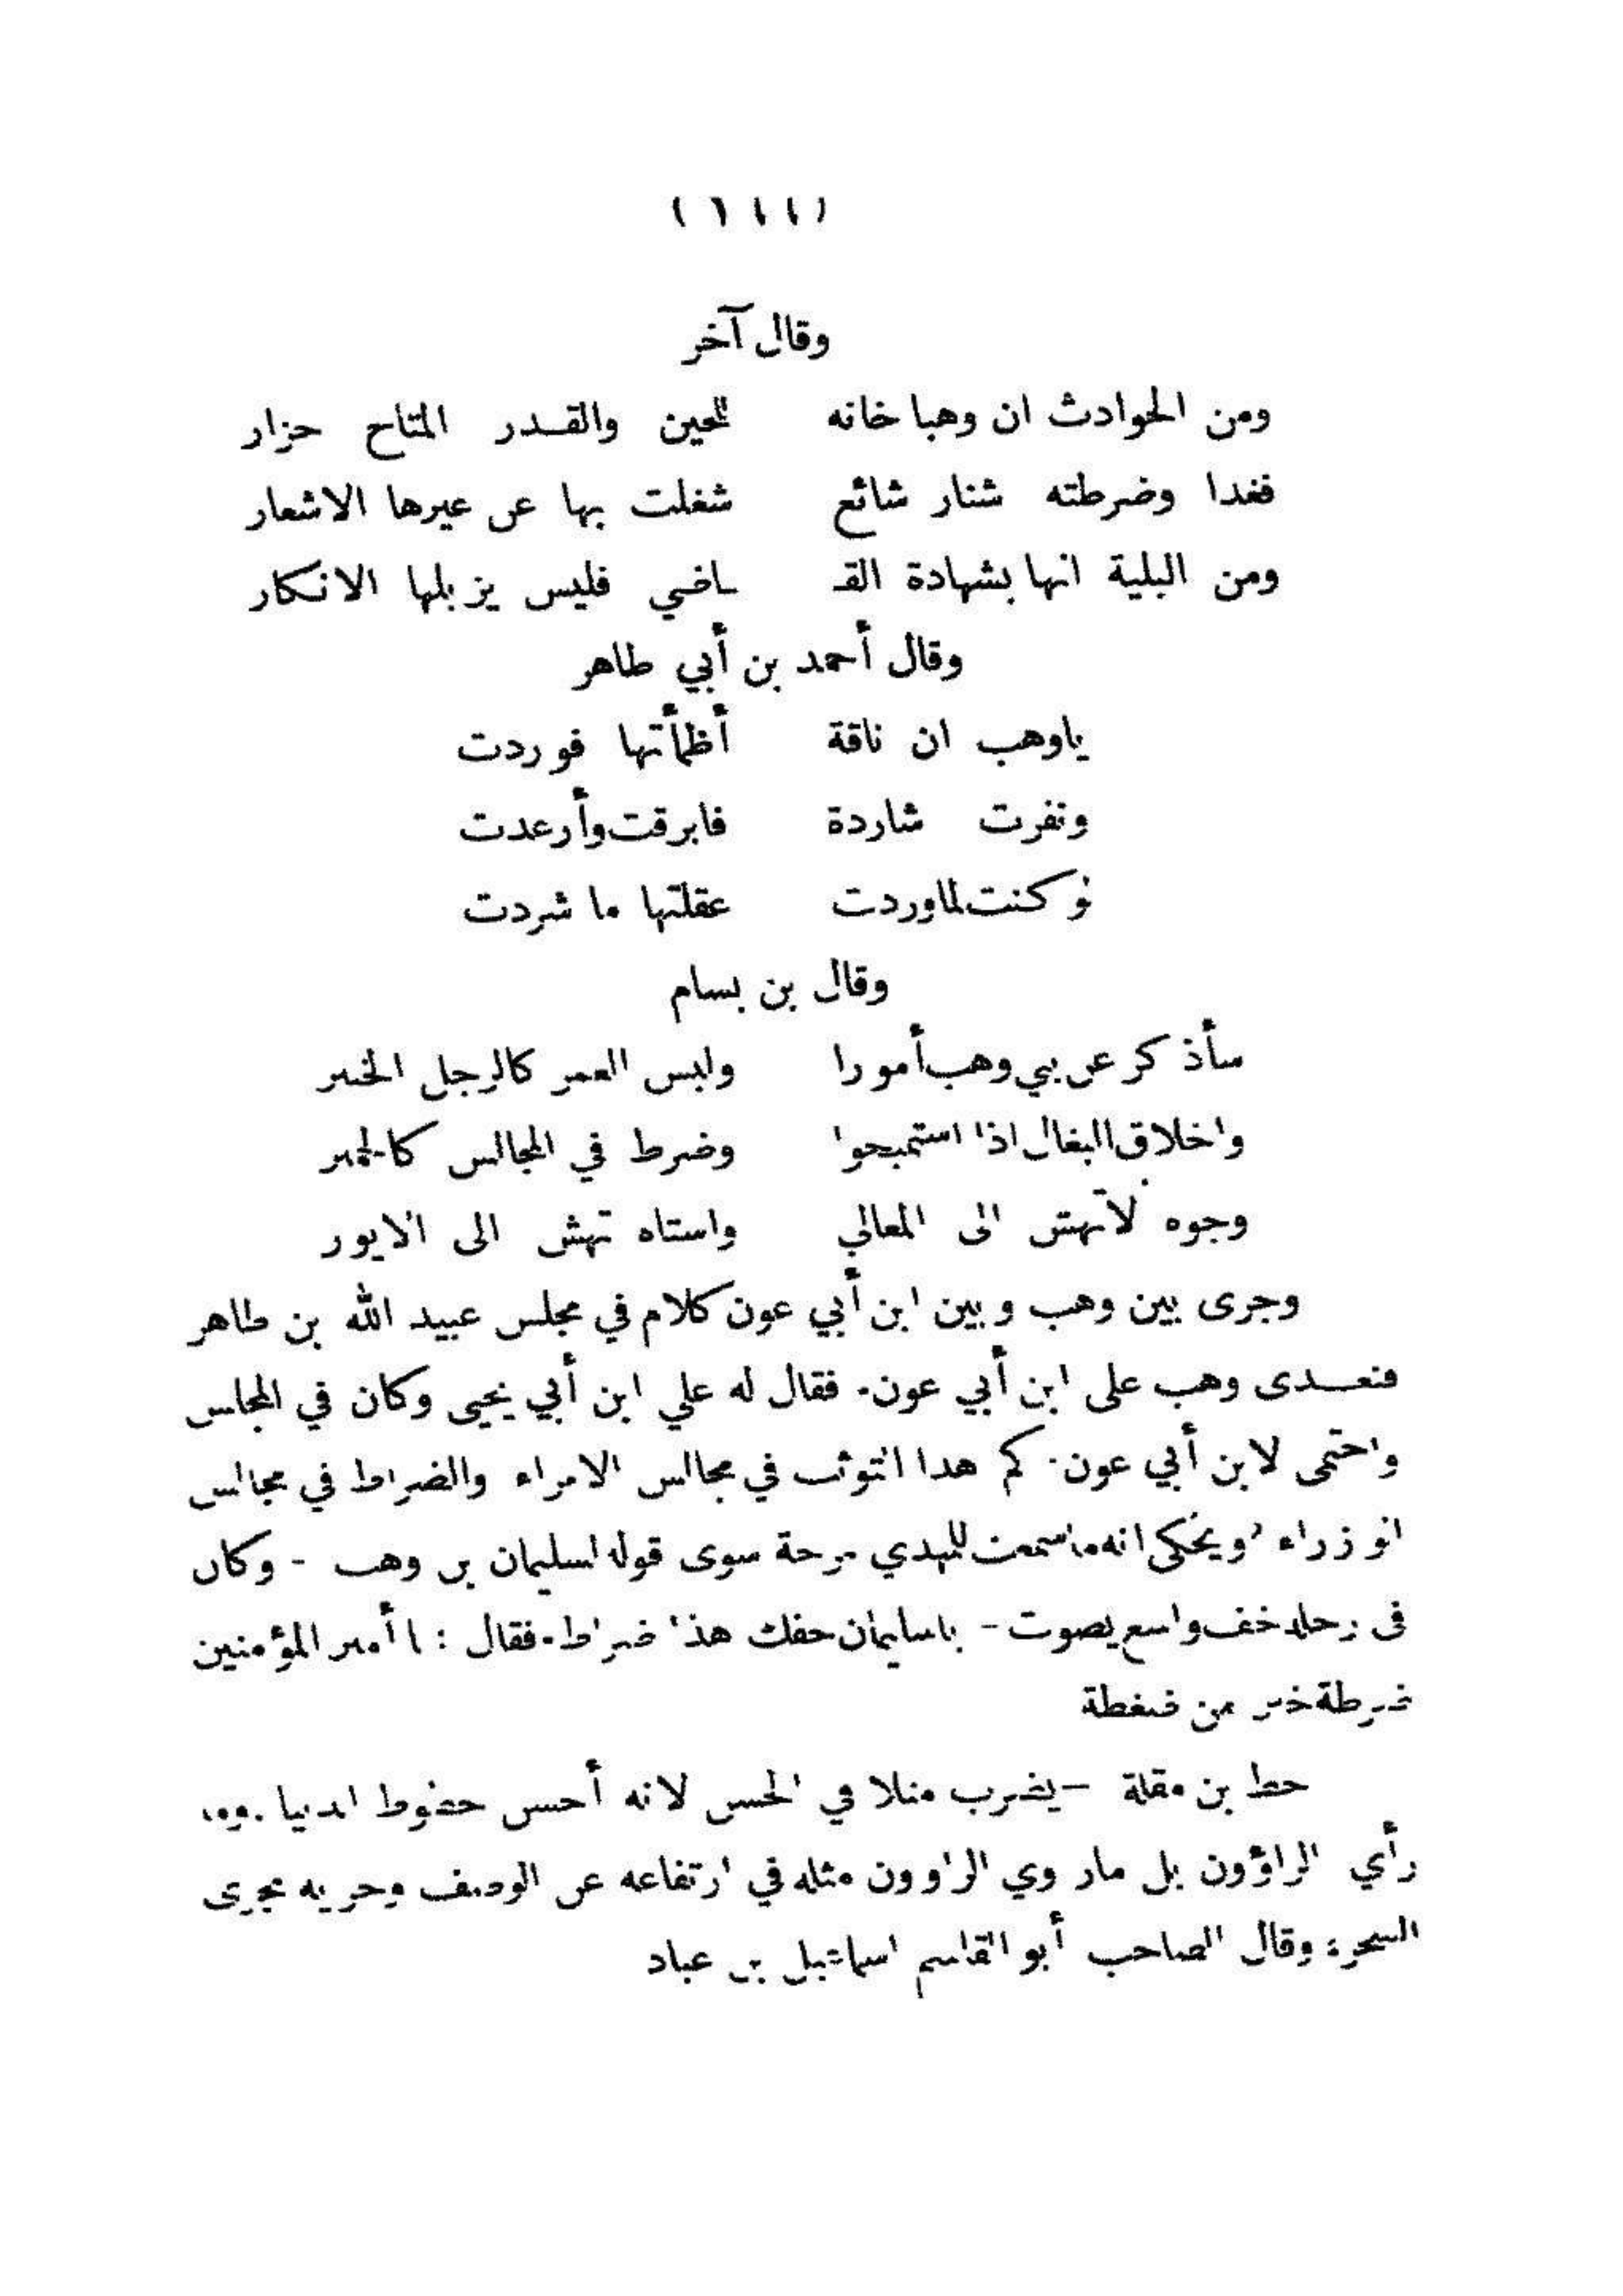 وقال آخر
ومن الحوادث ان وهبا خانه للحين والقــدر المتاح حزار
فغدا وضرطته شنار شائع شغلت بها عن غيرها الاشعار
ومن البلية انها بشهادة القـ ـاضي فليس يزيلها الانكار
وقال أحمد بن أبي طاهر
ياوهب ان ناقة أظمأتها فوردت
ونفرت شاردة فابرقت وأرعدت
لو كنت لما وردت عقلتها ما شردت
وقال بن بسام
سأذكر عن بني وهب أمورا وليس الغمر كالرجل الخبير
واخلاق البغال اذا استميحوا وضرط في المجالس كالحمير
وجوه لاتهش الى المعالي واستاه تهش الى الايور
وجرى بين وهب وبين ابن أبي عون كلام في مجلس عبيد الله بن طاهر
فتعــدى وهب على ابن أبي عون. فقال له علي ابن أبي يحيى وكان في المجلس
واحتمى لابن أبي عون. كم هذا التوثب في مجالس الامراء والضراط في مجالس
الوزراء ويحكى انه ما سمعت للمهدي مزحة سوى قوله لسليمان بن وهب - وكان
في رجله خف واسع يصوت - ياسليمان خفك هذا ضراط. فقال : يا أمير المؤمنين
ضرطة خير من ضغطة
خط بن مقلة - يضرب مثلا في الحسن لانه أحسن خطوط الدنيا. وما
رأي الراؤون بل ما روي الراوون مثله في ارتفاعه عن الوصف وجريه مجرى
السحر: وقال الصاحب أبو القاسم اسماعيل بن عباد